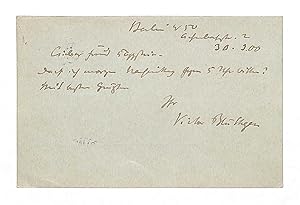 Berlin W 50
30.3.00
Lieber Freund
Darf ich morgen Nachmittag gegen 5 Uhr bitten?
Mit besten Grüßen
Ihr
Victor Blüthgen